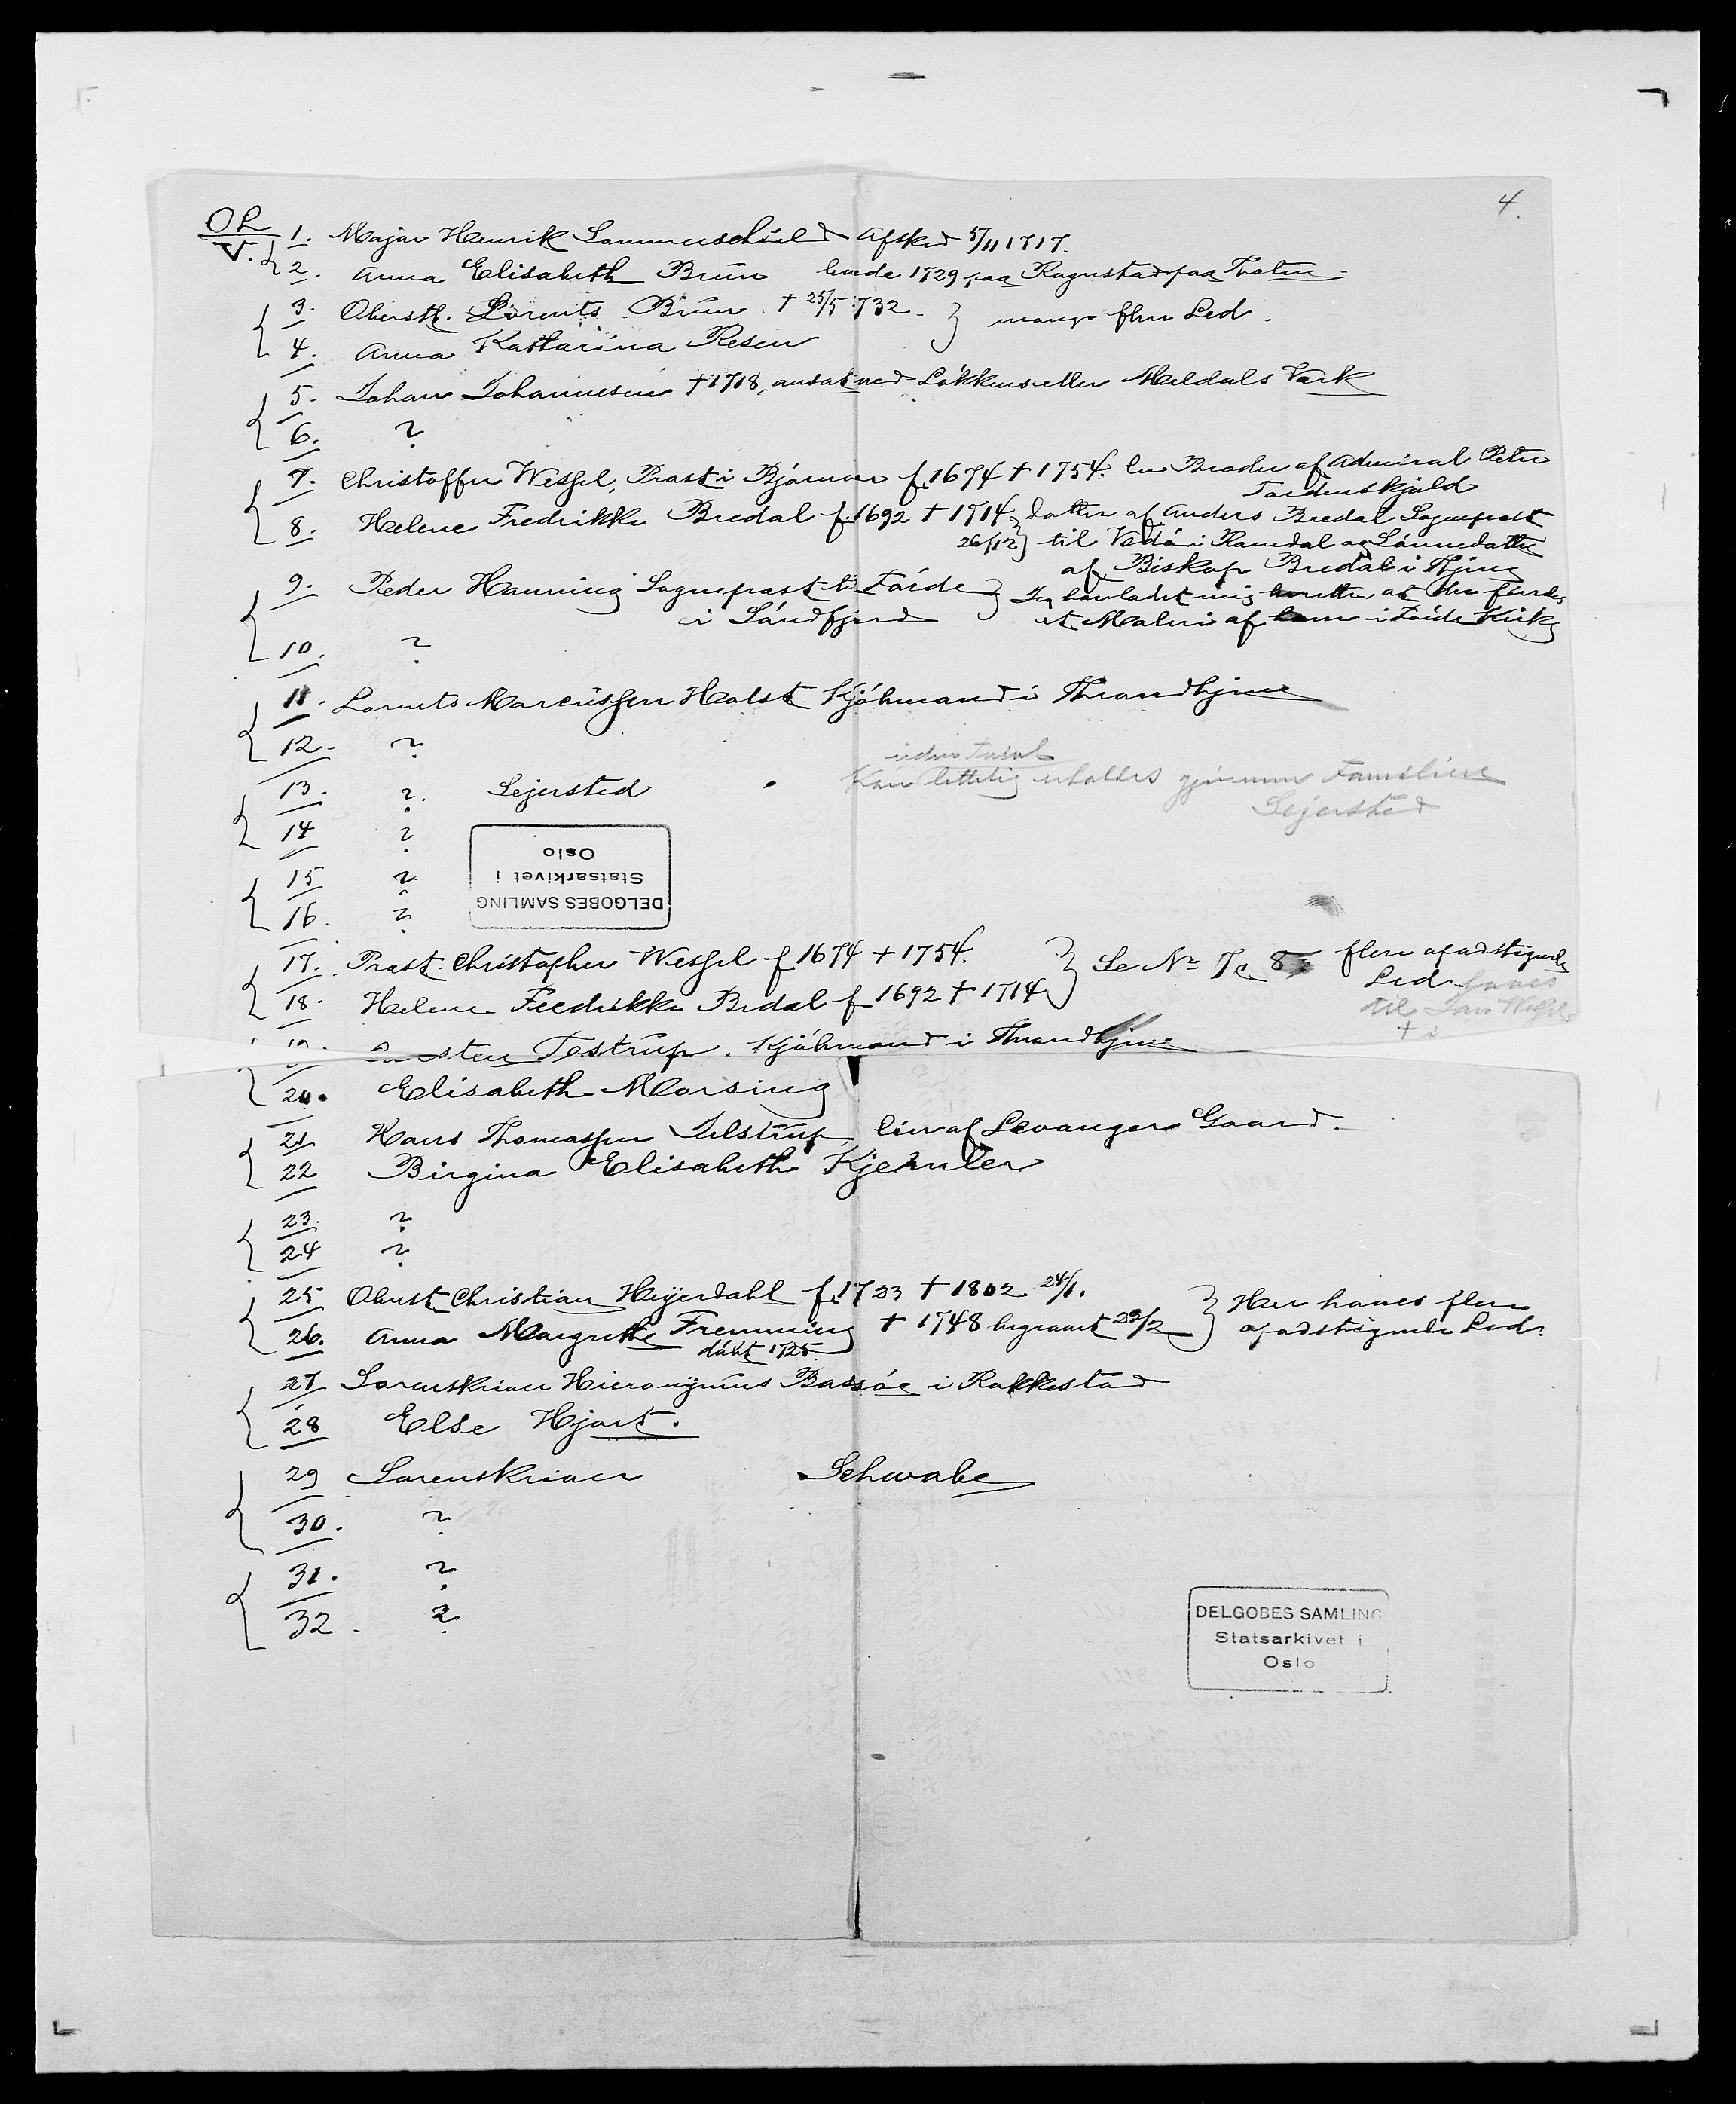 4.
OL
V.
1. Major Henrik Sommerschield Afsked 5/11 1717.
2. Anna Elisabeth Brün levde 1729 paa Rognstad paa Thoten
3. Oberstl. Lorents Brün. † 25/5 1732. } mange flere Led.
4. Anna Kattarina Resen
5. Johan Johannesen † 1718, ansat ved Løkkens eller Meldals Værk
6. ?
7. Christoffer Wessel, Præst i Bjørnør f. 1674 † 1754. en Broder af Admiral Peter
Tordenskjold
8. Helene Fredrikke Bredal f. 1692 † 1714 } datter af Anders Bredal Sognepræst
26/12 } til Vedø i Ramsdal og Sønnedatter
af Biskop Bredal i Thjem
9. Peder Hanning Sognepræst til Førde } Jeg har ladet mig berette, at der findes
i Søndfjord } et Maleri af ham i Førde Kirke
10. ?
11. Lorents Marcussen Holst Kjøbmand i Throndhjem
12. ?
uden Tvivl
13. ? Sejersted Kan lettelig erholdes gjennem Familien
Sejersted
14 ?
DELGOBES SAMLING
Statsarkivet i
Oslo
15 ?
16. ?
17. Præst. Christopher Wessel f. 1674 † 1754. } Se No 7 & 8 flere opadstigende
Led haves
18. Helene Fredrikke Bredal f 1692 † 1714
til Jan Wessel
† i
19. Testrup. Kjøbmand i Throndhjem
20. Elisabeth Morsing
21 Hans Thomassen Jelstrup, Eier af Levanger Gaard.
22 Birgina Elisabeth Kjemler
23. ?
24 ?
25 Oberst Christian Heyerdahl f. 1723 † 1802 24/1. } Her haves flere
26. Anna Margrethe Fremming † 1748 begravet 29/2 } opadstigende Led.
døbt 1725.
27 Sorenskriver Hieronymus Bassøe i Rakkestad
28 Else Hjort.
29 Sorenskriver Schwabe
30. ?
31. ?
32. ?
DELGOBES SAMLING
Statsarkivet i
Oslo